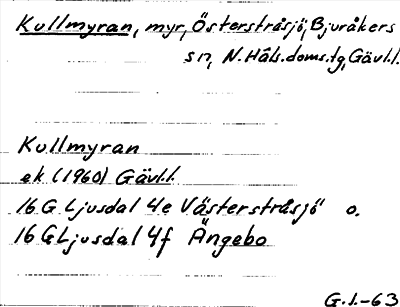 Kullmyran, myr, Österstråsjö, Bjuråkers
sn, N. Häls. doms. tg, Gävl.l.
Kullmyran
ek (1960) Gävl.l.
16 G Ljusdal 4e Västerstråsjö o.
16 G Ljusdal 4f Ängebo
G.I.-63